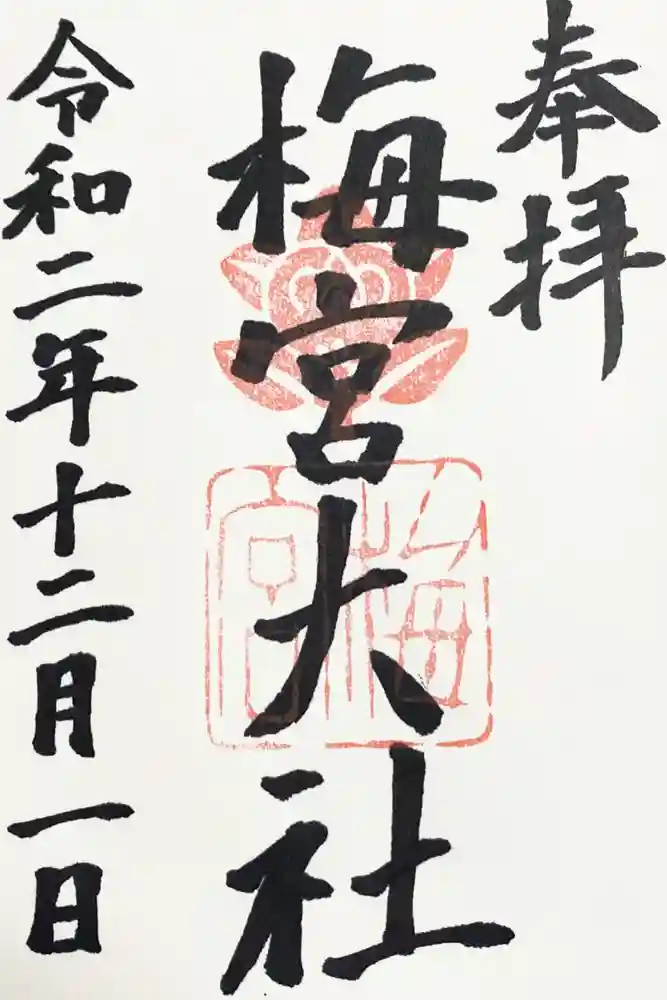 奉拝
梅宮大社
梅宮
令和二年十二月一日